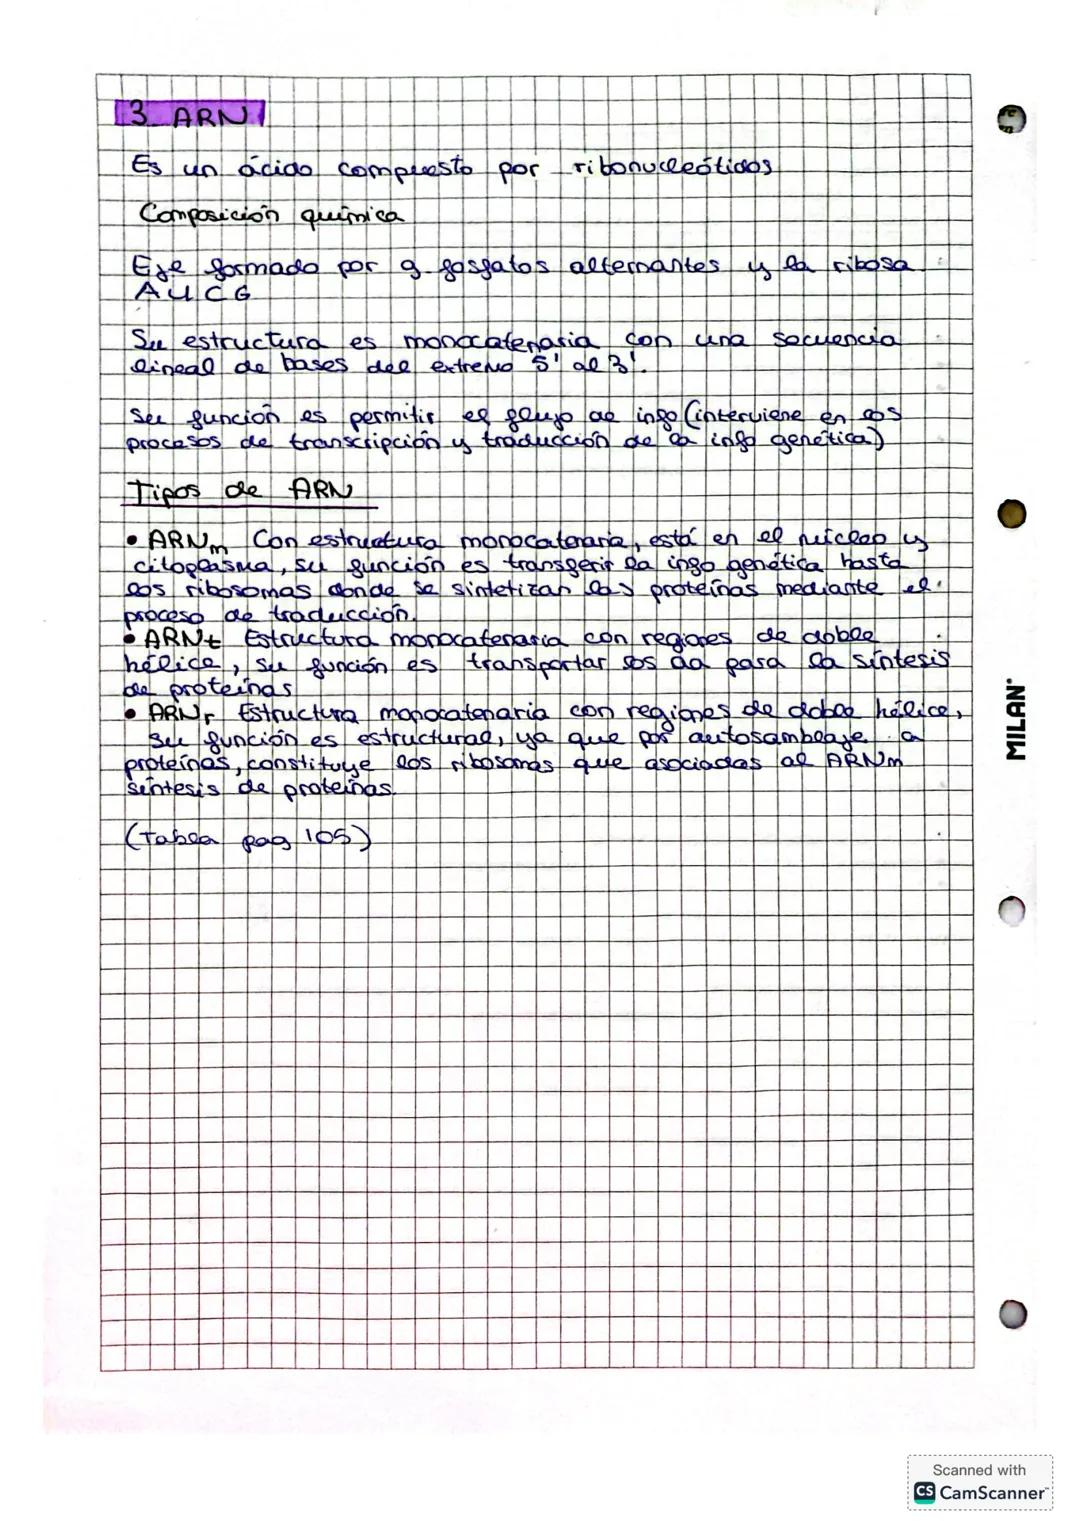 3 ARN
Es un ácido compuesto por ribonucleótidos
Composición química
Eje formado por g fosfatos alternantes y la ribosa
AUCG
Su estructura es monocatenaria con una secuencia
lineal de bases del extremo 5' al 3'.
Su función es permitir el flujo de info (interviene en los
procesos de transcripción y traducción de la info genética)
Tipos de ARN
• ARNm Con estructura monocatenaria, está en el núcleo y
citoplasma, su función es transferir la info genética hasta
los ribosomas donde se sintetizan las proteínas mediante el
proceso de traducción.
• ARNt Estructura monocatenaria con regiones de doble
hélice, su función es transportar los aa para la síntesis
de proteínas
• ARNr Estructura monocatenaria con regiones de doble hélice,
su función es estructural, ya que por autosamblaje a
proteínas, constituye los ribosomas que asociadas al ARNm
síntesis de proteínas.
(Tabla pag 105)
MILAN®
Scanned with
CS CamScanner